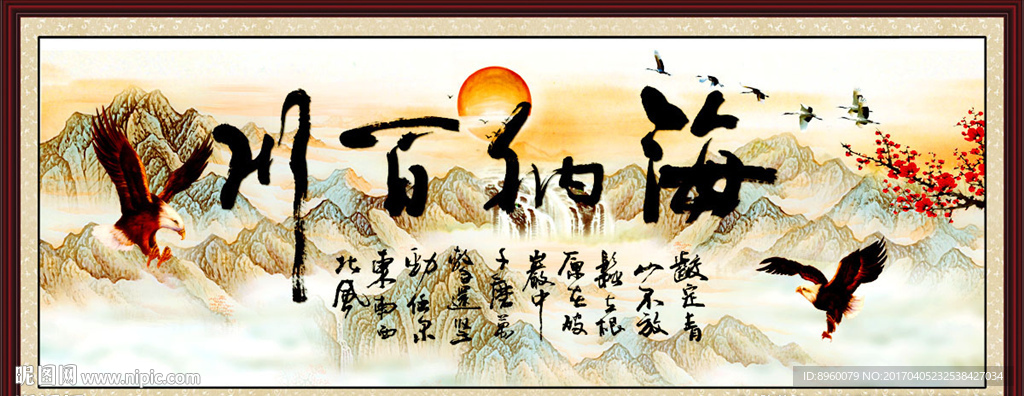 海纳百川
齩定青
山不放
鬆立根
原在破
巖中
千磨萬
擊還堅
勁任尔
東南西
北風
昵图网 www.nipic.com
ID:8960079 NO:20170405232538427034